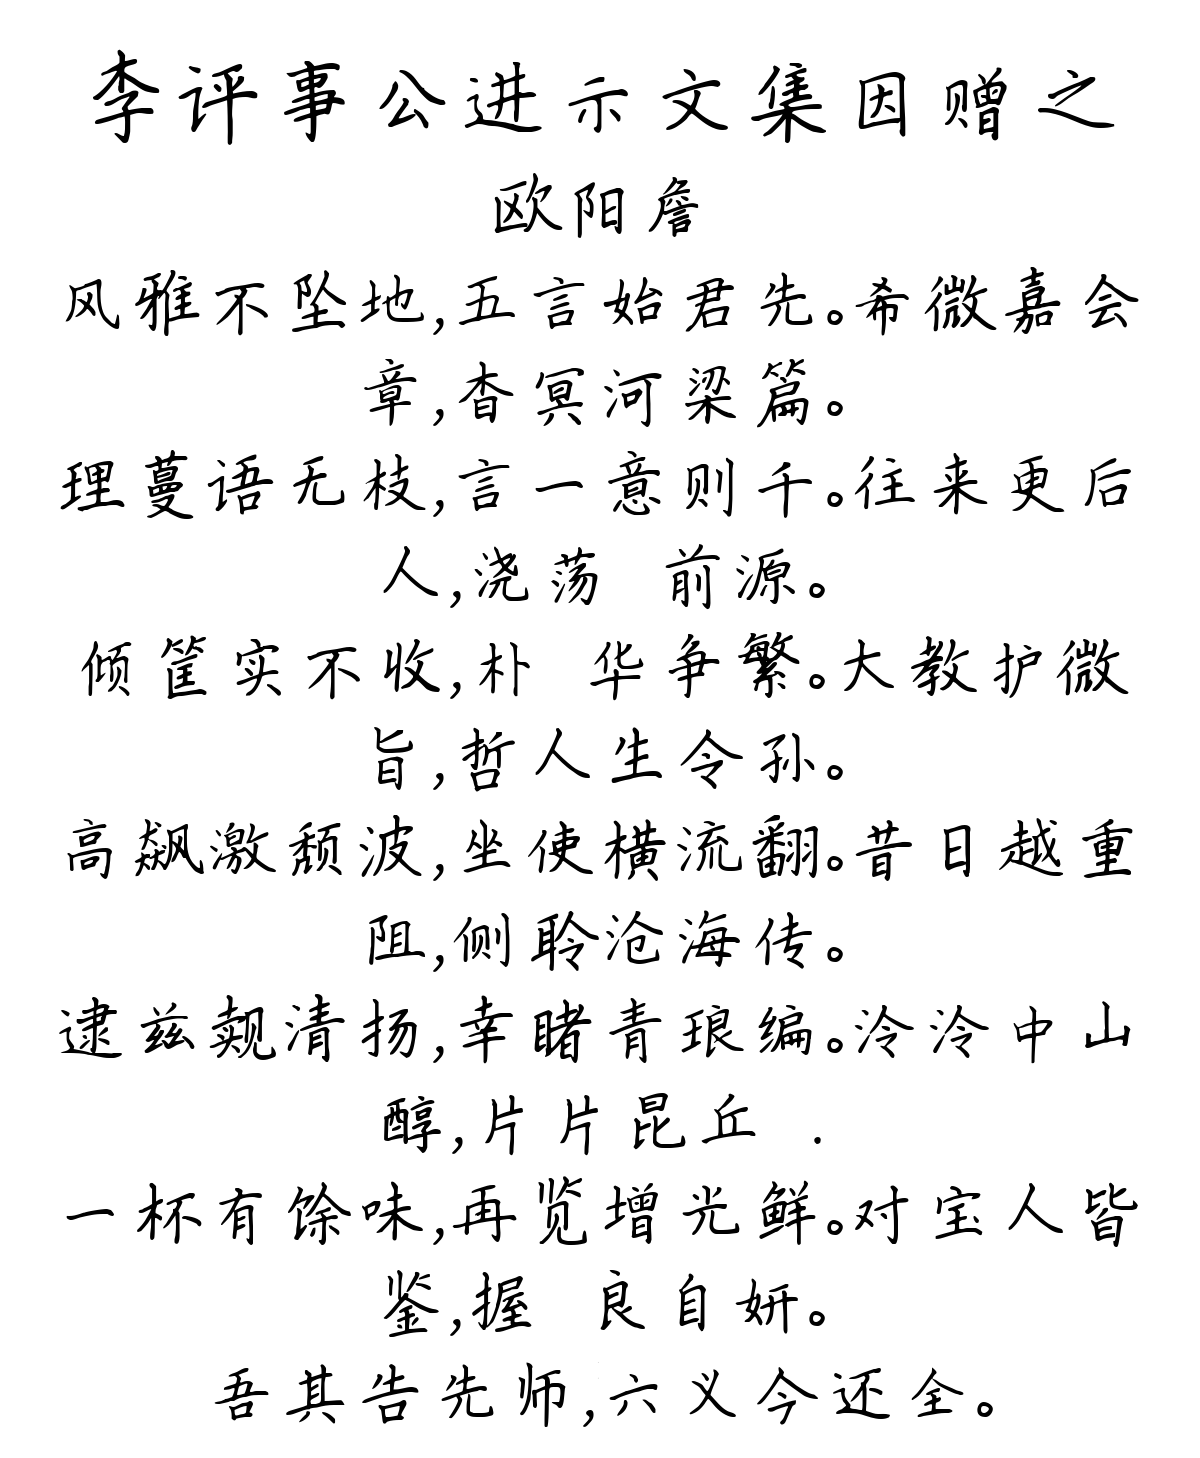 李评事公进示文集因赠之
欧阳詹
风雅不坠地,五言始君先。希微嘉会
章,杳冥河梁篇。
理蔓语无枝,言一意则千。往来更后
人,浇荡 前源。
倾筐实不收,朴 华争繁。大教护微
旨,哲人生令孙。
高飙激颓波,坐使横流翻。昔日越重
阻,侧聆沧海传。
逮兹觌清扬,幸睹青琅编。泠泠中山
醇,片片昆丘 .
一杯有馀味,再览增光鲜。对宝人皆
鉴,握 良自妍。
吾其告先师,六义今还全。